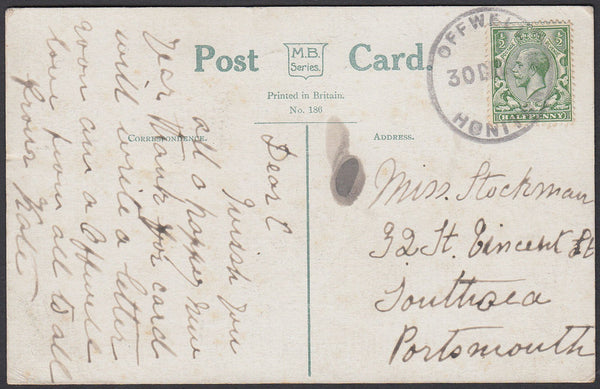 Post Card.
M.B.
Series.
Printed in Britain.
No. 186
CORRESPONDENCE.
ADDRESS.
OFFWE
30 D
HONI
½
½
HALFPENNY
Dear C
Jussh you
all a happy New
Dear Thank for card
will write a letter
soon am a Offwell
love from all to all
from Kate
Miss. Stockman
32 St. Vincent St
Southsea
Portsmouth